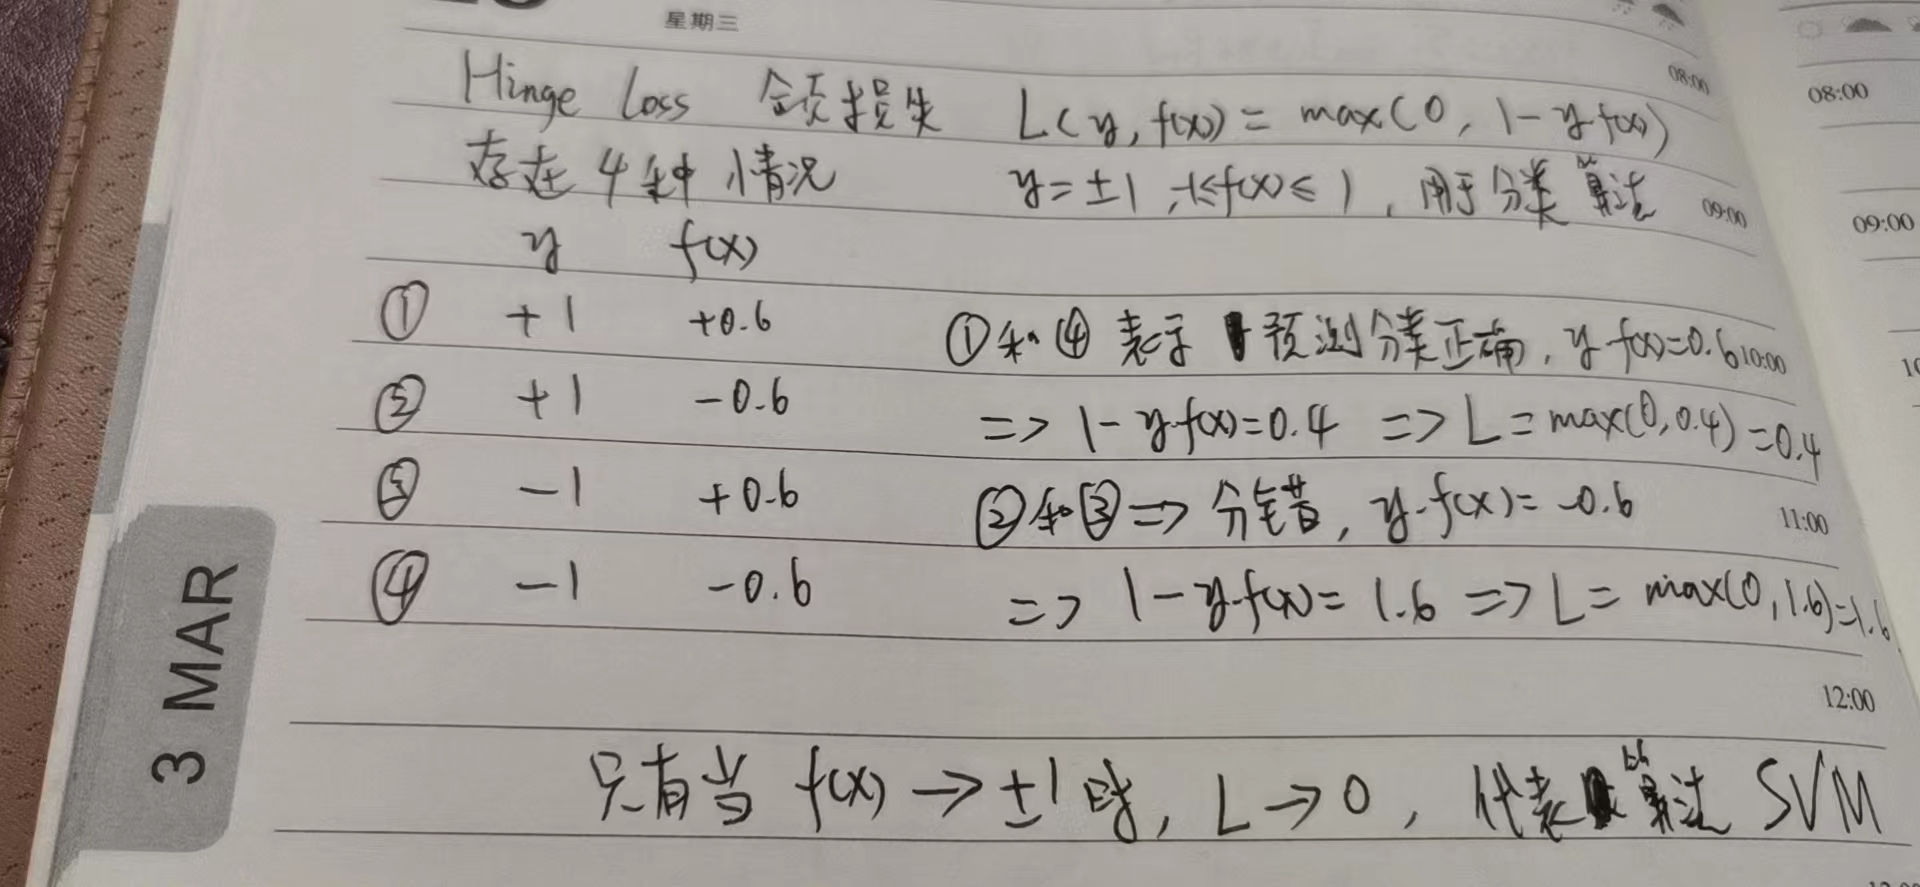 星期三
08:00
08:00
Hinge Loss 合页损失 L(y, f(x)) = max(0, 1-yf(x))
存在4种情况 y=±1, -1≤f(x)≤1, 用于分类算法
09:00
09:00
y f(x)
① +1 +0.6 ①和④表示预测分类正确, y·f(x)=0.6
10:00
② +1 -0.6 => 1-y·f(x)=0.4 => L=max(0,0.4)=0.4
③ -1 +0.6 ②和③=> 分错, y·f(x)=-0.6
11:00
④ -1 -0.6 => 1-y·f(x)=1.6 => L=max(0,1.6)=1.6
3 MAR
12:00
只有当 f(x)→±1时, L→0, 代表算法 SVM